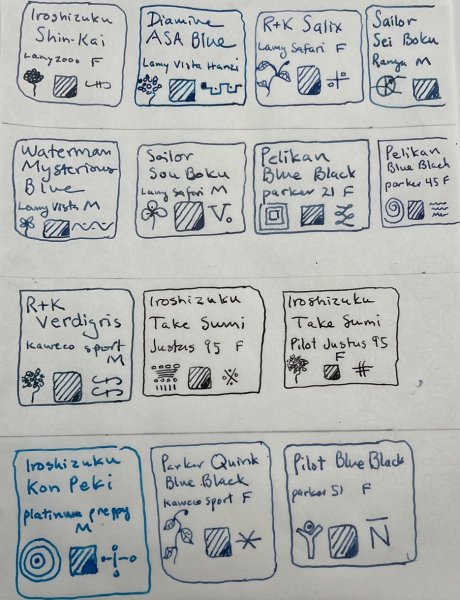 Iroshizuku
Shin-Kai
Lamy 2000 F
Diamine
ASA Blue
Lamy Vista Hanzi
R+K Salix
Lamy Safari F
Sailor
Sei Boku
Ranga M
Waterman
Mysterious
Blue
Lamy Vista M
Sailor
Sou Boku
Lamy Safari M
Pelikan
Blue Black
parker 21 F
Pelikan
Blue Black
parker 45 F
R+K
Verdigris
Kaweco sport
M
Iroshizuku
Take Sumi
Justus 95 F
Iroshizuku
Take Sumi
Pilot Justus 95
F
Iroshizuku
Kon Peki
platinum preppy
M
Parker Quink
Blue Black
Kaweco sport F
Pilot Blue Black
parker 51 F